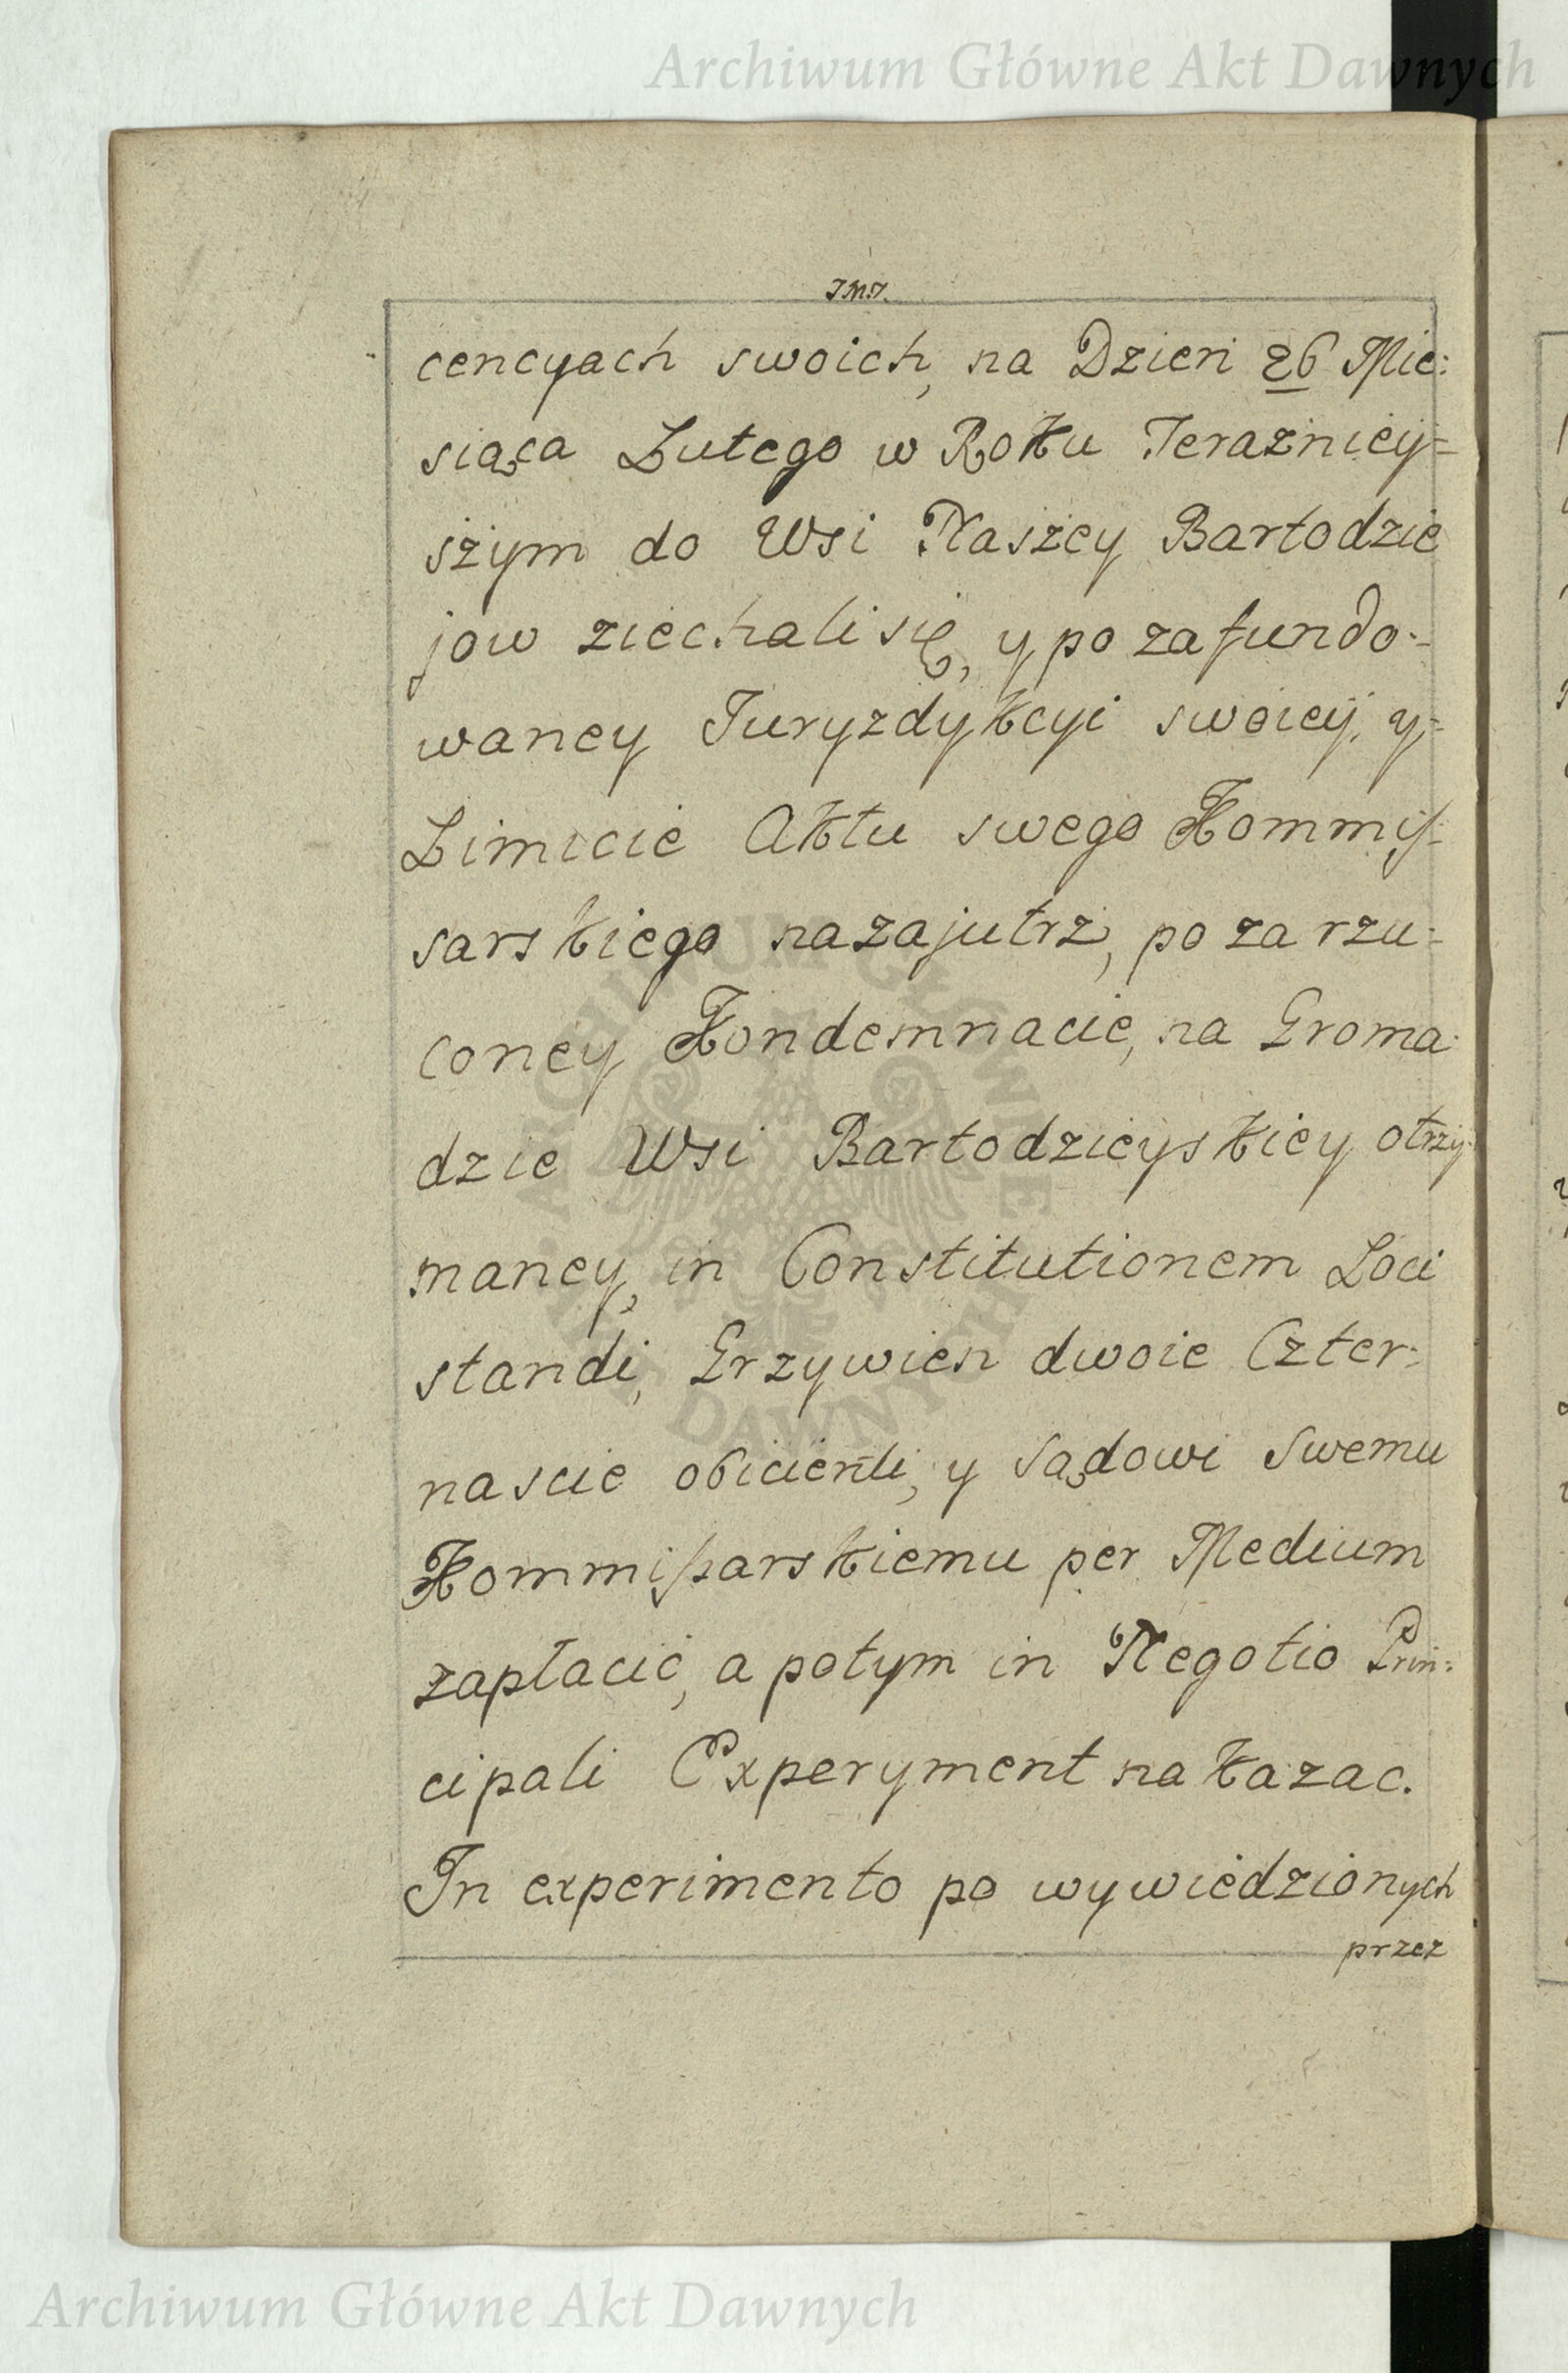 Archiwum Główne Akt Dawnych
J.M.J.
cencyach swoich, na Dzien 26 Mie:
siąca Lutego w Roku Terazniey-
szym do Wsi Naszey Bartodzie
jow ziechali się, y po zafundo-
waney Juryzdykcyi swoiey, y-
Limicie Aktu swego Kommis-
sarskiego nazajutrz, po zarzu-
coney Kondemnacie, na Groma
dzie Wsi Bartodzieyskiey otrzy-
maney, in Constitutionem Loci
standi, Grzywien dwoie Czter-
nascie obicienti, y sądowi swemu
Kommissarskiemu per Medium
zapłacić, a potym in Negotio Prin:
cipali Experyment nakazac.
In experimento po wywiedzionych
przez
ARCHIWUM GŁÓWNE AKT DAWNYCH
Archiwum Główne Akt Dawnych